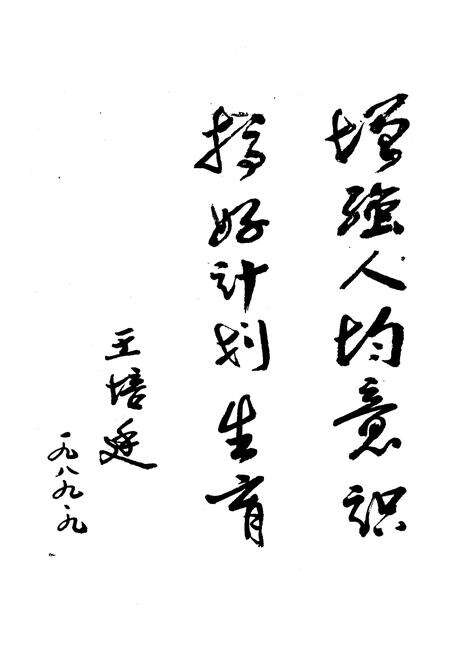 增强人均意识
搞好计划生育
王培廷
一九八九·九